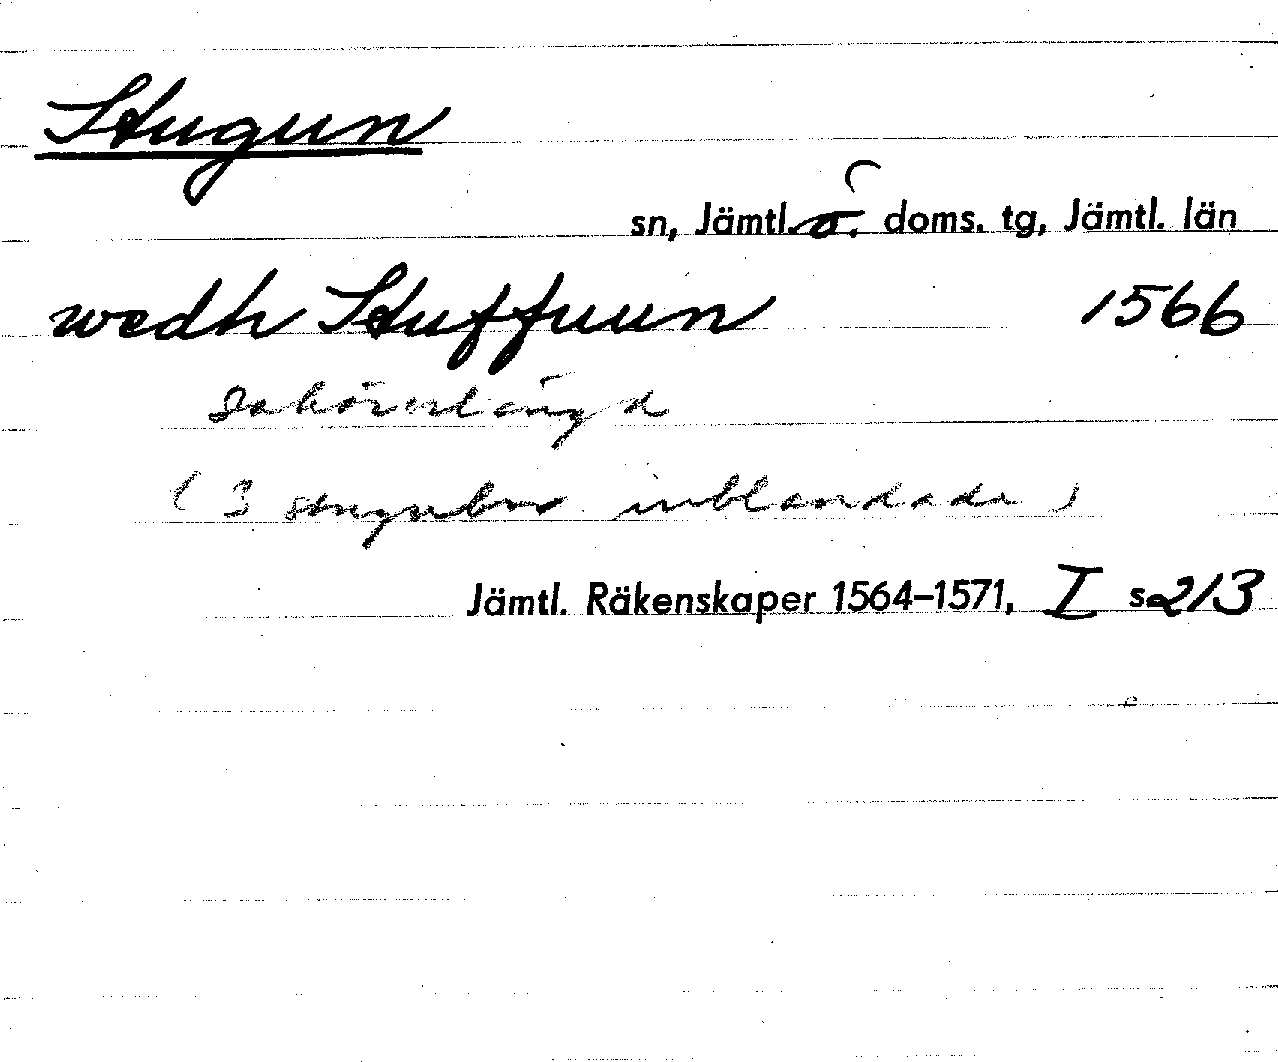 Stugun
sn, Jämtl. ö. doms. tg, Jämtl. län
wedh Stuffuun 1566
Sakörerlängd
( 3 inblandade )
Jämtl. Räkenskaper 1564–1571, I s 213